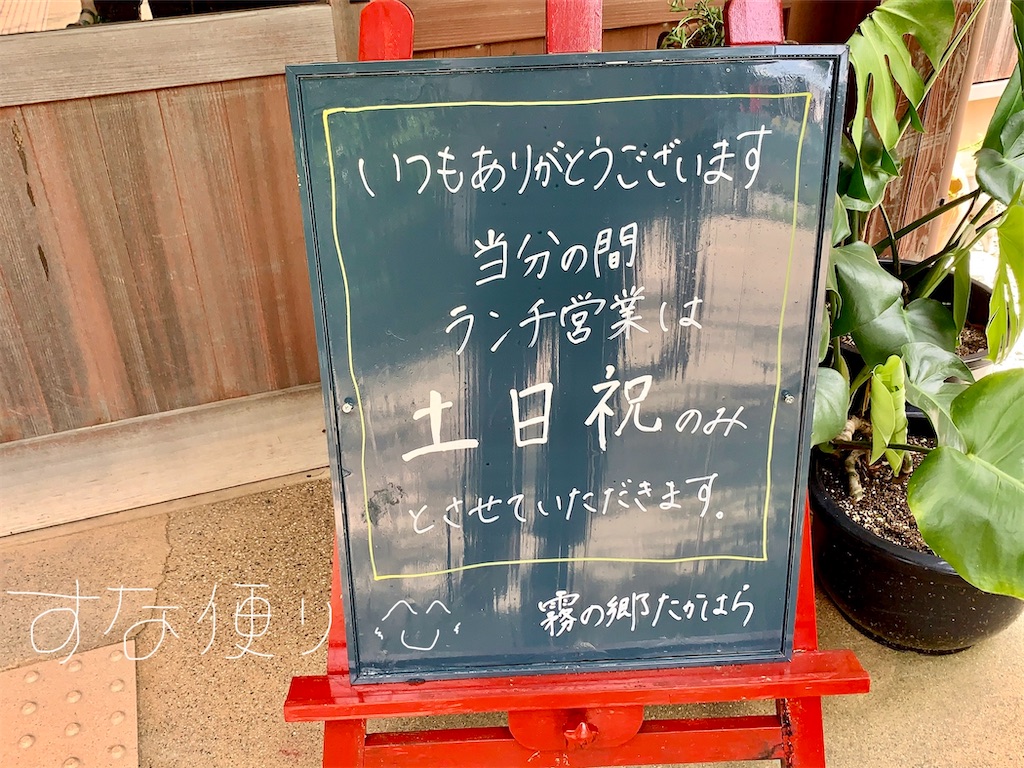 いつもありがとうございます
当分の間
ランチ営業は
土日祝のみ
とさせていただきます。
霧の郷たかはら
すな便り